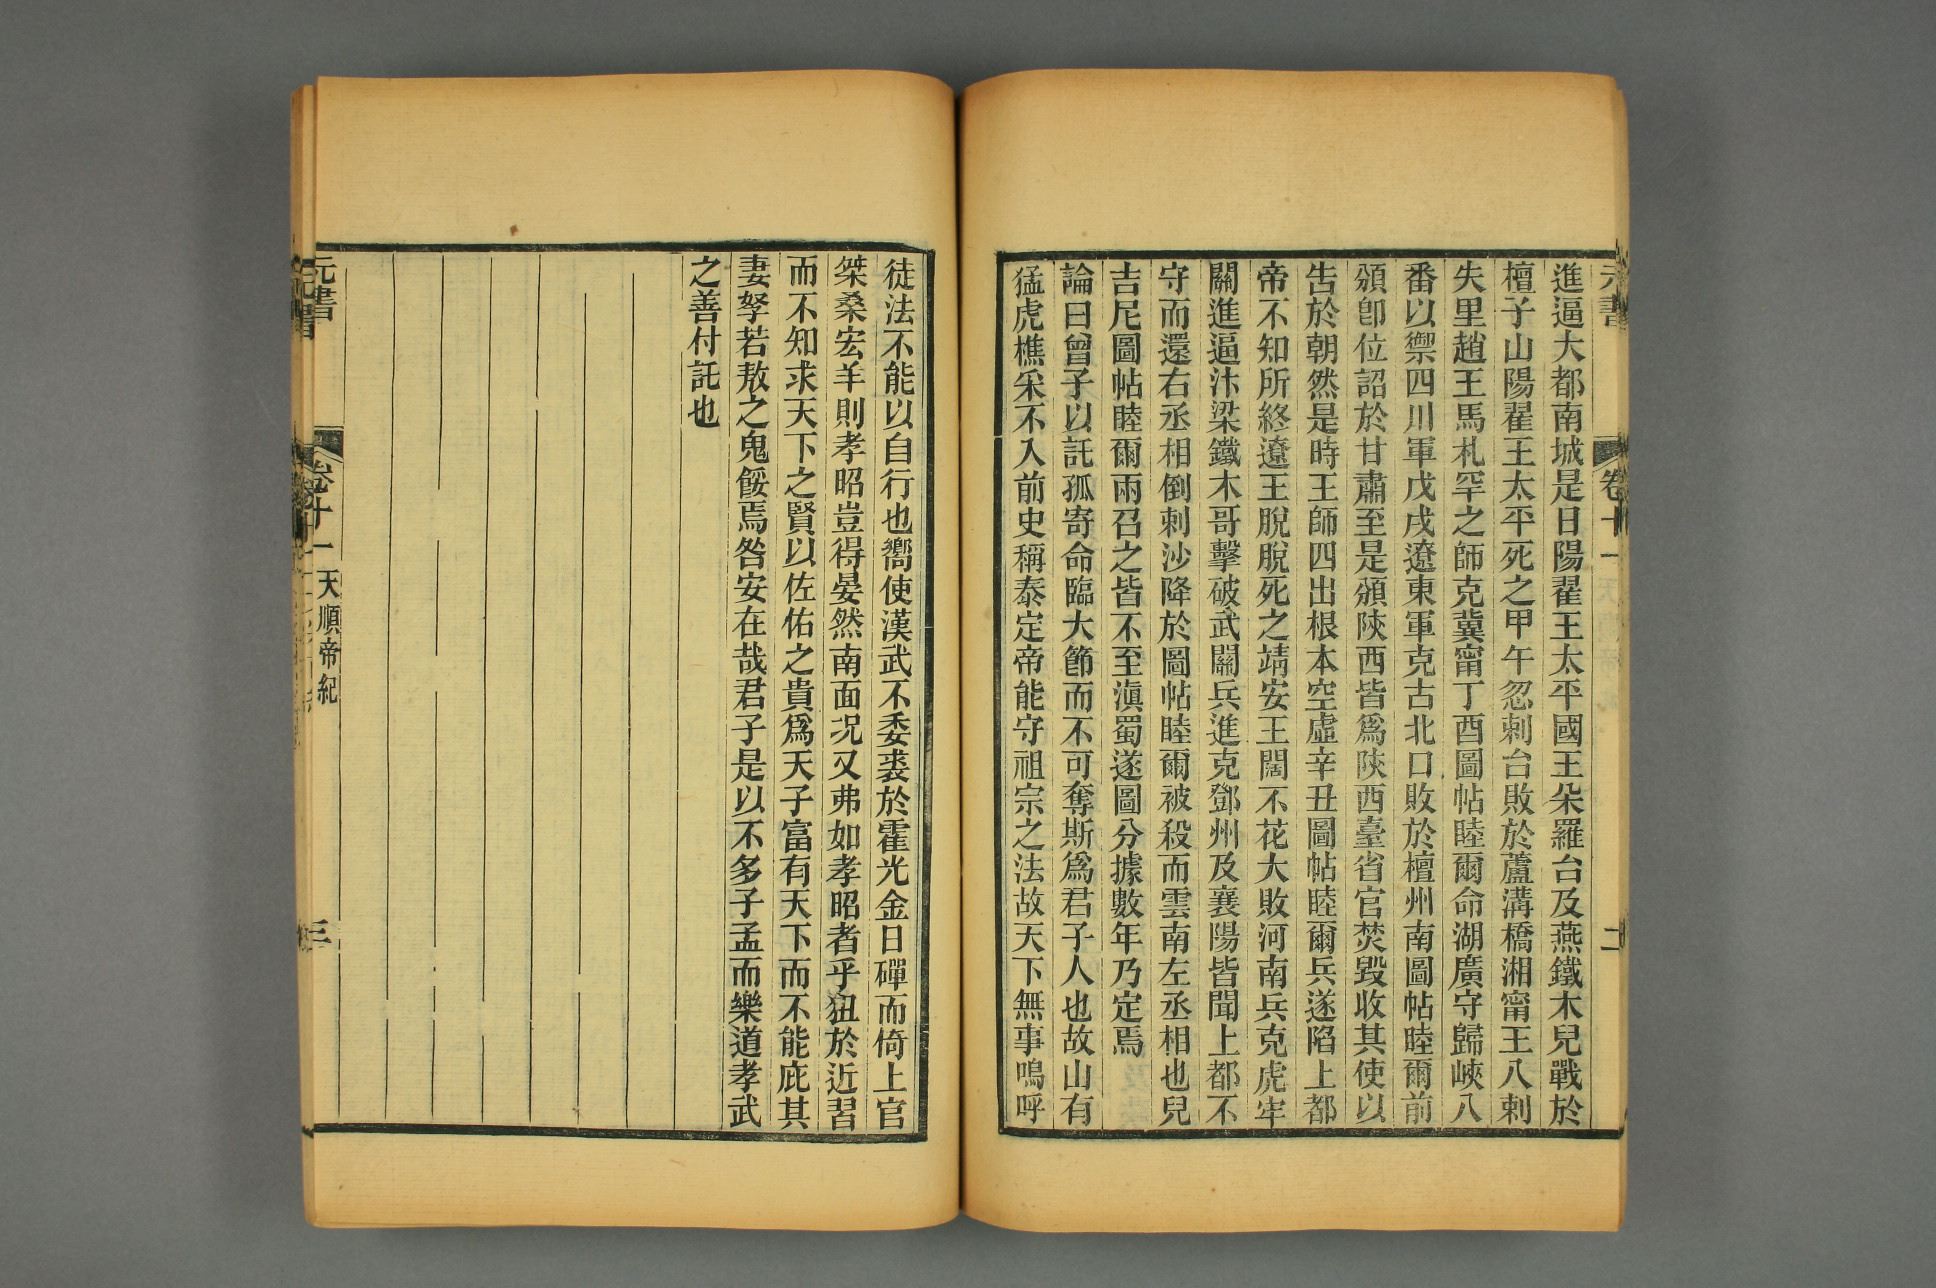 進逼大都南城是日陽翟王太平國王朵羅台及燕鐵木兒戰於
檀子山陽翟王太平死之甲午忽剌台敗於蘆溝橋湘甯王八剌
失里趙王馬札罕之師克冀甯丁酉圖帖睦爾命湖廣守歸峽八
番以禦四川軍戊戌遼東軍克古北口敗於檀州南圖帖睦爾前
頒卽位詔於甘肅至是頒陝西皆爲陝西臺省官焚毀收其使以
告於朝然是時王師四出根本空虛辛丑圖帖睦爾兵遂陷上都
帝不知所終遼王脫脫死之靖安王闊不花大敗河南兵克虎牢
關進逼汴梁鐵木哥擊破武關兵進克鄧州及襄陽皆聞上都不
守而還右丞相倒剌沙降於圖帖睦爾被殺而雲南左丞相也兒
吉尼圖帖睦爾兩召之皆不至滇蜀遂圖分據數年乃定焉
論曰曾子以託孤寄命臨大節而不可奪斯爲君子人也故山有
猛虎樵采不入前史稱泰定帝能守祖宗之法故天下無事嗚呼
元書
卷十一
二
徒法不能以自行也嚮使漢武不委裘於霍光金日磾而倚上官
桀桑宏羊則孝昭豈得晏然南面况又弗如孝昭者乎狃於近習
而不知求天下之賢以佐佑之貴爲天子富有天下而不能庇其
妻孥若敖之鬼餒焉咎安在哉君子是以不多子孟而樂道孝武
之善付託也
元書
卷十一
天順帝紀
三